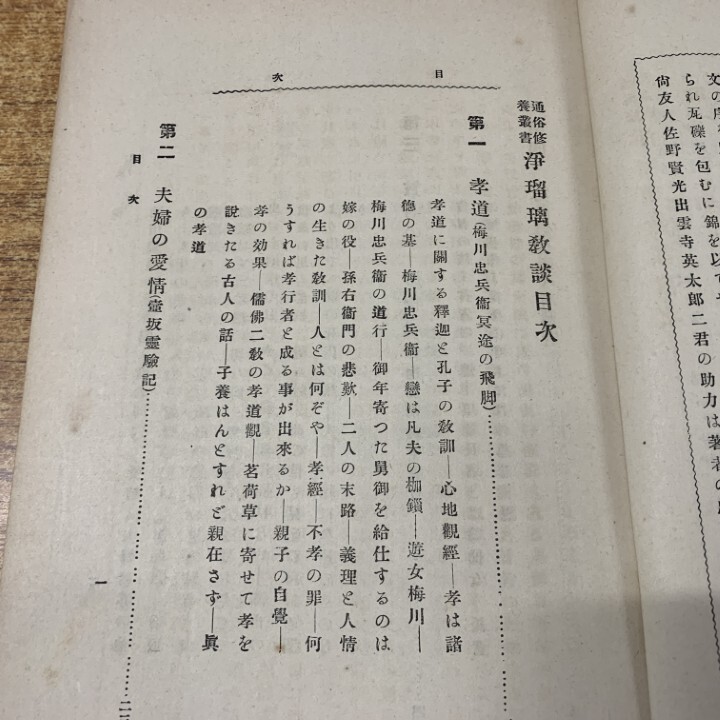 文の序
られ瓦礫を包むに錦を以て
尙友人佐野賢光出雲寺英太郎二君の助力は著者の
目次
通俗修養叢書 淨瑠璃敎談目次
第一 孝道(梅川忠兵衞冥途の飛脚)
孝道に關する釋迦と孔子の敎訓―心地觀經―孝は諸
德の基―梅川忠兵衞―戀は凡夫の枷鎖―遊女梅川―
梅川忠兵衞の道行―御年寄つた舅御を給仕するのは
嫁の役―孫右衞門の悲歎―二人の末路―義理と人情
の生きた敎訓―人とは何ぞや―孝經―不孝の罪―何
うすれば孝行者と成る事が出來るか―親子の自覺―
孝の効果―儒佛二敎の孝道觀―茗荷草に寄せて孝を
說きたる古人の話―子養はんとすれど親在さず―眞
の孝道
第二 夫婦の愛情(壺坂靈驗記)
目次
一